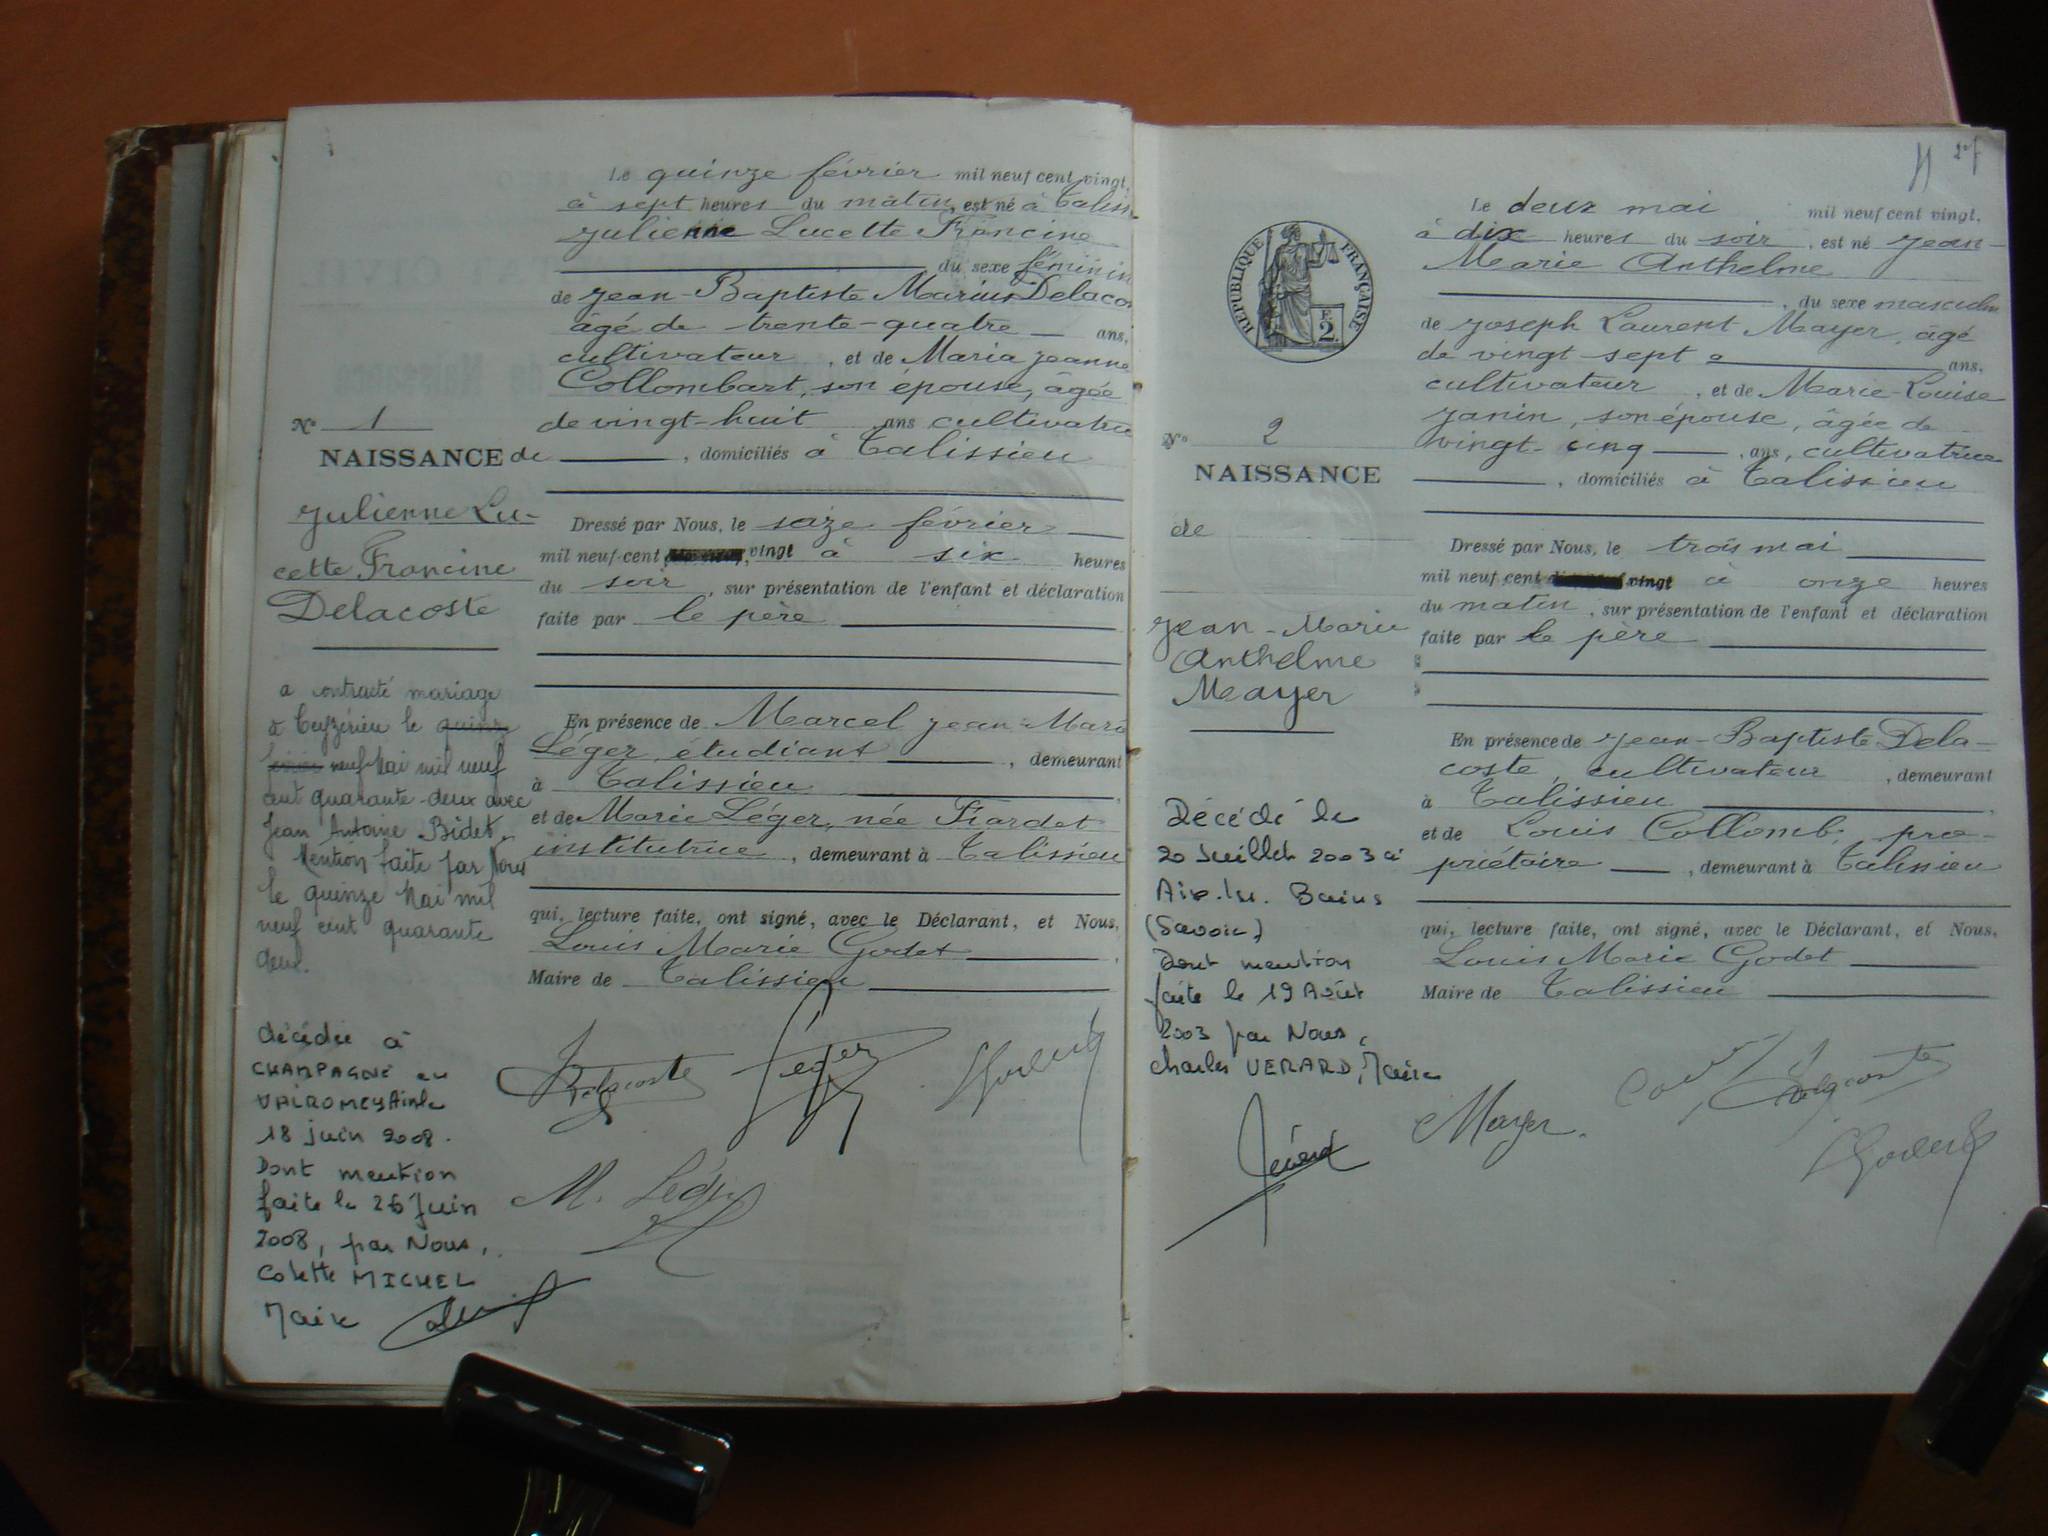 Le quinze février mil neuf cent vingt,
à sept heures du matin, est né à Taliss
Julienne Lucette Francine
du sexe féminin
de Jean-Baptiste Marius Delacos
âgé de trente-quatre ans,
cultivateur, et de Maria Jeanne
Collombart, son épouse, âgée
de vingt-huit ans cultivatrice
, domiciliés à Talissieu
N° 1
NAISSANCE de
Julienne Lu-
cette Francine
Delacoste
Dressé par Nous, le seize février
mil neuf cent vingt à six heures
du soir, sur présentation de l'enfant et déclaration
faite par le père
a contracté mariage
à Ceyzérieu le quinze
neuf Mai mil neuf
cent quarante-deux avec
Jean Antoine Bidet.
Mention faite par Nous
le quinze Mai mil
neuf cent quarante
deux.
En présence de Marcel Jean-Marie
Léger, étudiant, demeurant
à Talissieu
et de Marie Léger, née Fiardet
institutrice, demeurant à Talissieu
qui, lecture faite, ont signé, avec le Déclarant, et Nous,
Louis Marie Godet
Maire de Talissieu
décédée à
CHAMPAGNE en
VALROMEY Ain le
18 juin 2008.
Dont mention
faite le 26 Juin
2008, par Nous,
Colette MICHEL
Maire
Delacoste Léger Godet
M. Léger
27
REPUBLIQUE FRANÇAISE
F.
2.
Le deux mai mil neuf cent vingt,
à dix heures du soir, est né Jean-
Marie Anthelme
, du sexe masculin
de Joseph Laurent Mayer, âgé
de vingt sept ans,
cultivateur, et de Marie-Louise
Janin, son épouse, âgée de
vingt-cinq ans, cultivatrice
, domiciliés à Talissieu
N° 2
NAISSANCE
de
Jean-Marie
Anthelme
Mayer
Dressé par Nous, le trois mai
mil neuf cent vingt à onze heures
du matin, sur présentation de l'enfant et déclaration
faite par le père
En présence de Jean-Baptiste Dela-
coste, cultivateur, demeurant
à Talissieu
et de Louis Collomb, pro-
priétaire, demeurant à Talissieu
qui, lecture faite, ont signé, avec le Déclarant, et Nous,
Louis Marie Godet
Maire de Talissieu
Décédé le
20 Juillet 2003 à
Aix-les-Bains
(Savoie)
Dont mention
faite le 19 Août
2003 par Nous,
Charles VERARD, Maire
Vérard
Mayer Delacoste
Godet